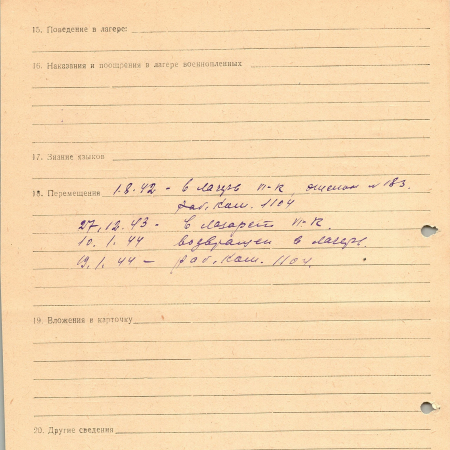 15. Поведение в лагере:
16. Наказания и поощрения в лагере военнопленных
17. Знание языков
18. Перемещения 1.8.42 - в лагерь п-к, 183.
раб. ком. 1104
27.12.43 - в лазарет п-к.
10.1.44 возвращен в лагерь.
19.1.44 - раб. ком. 1104.
19. Вложения в карточку
20. Другие сведения